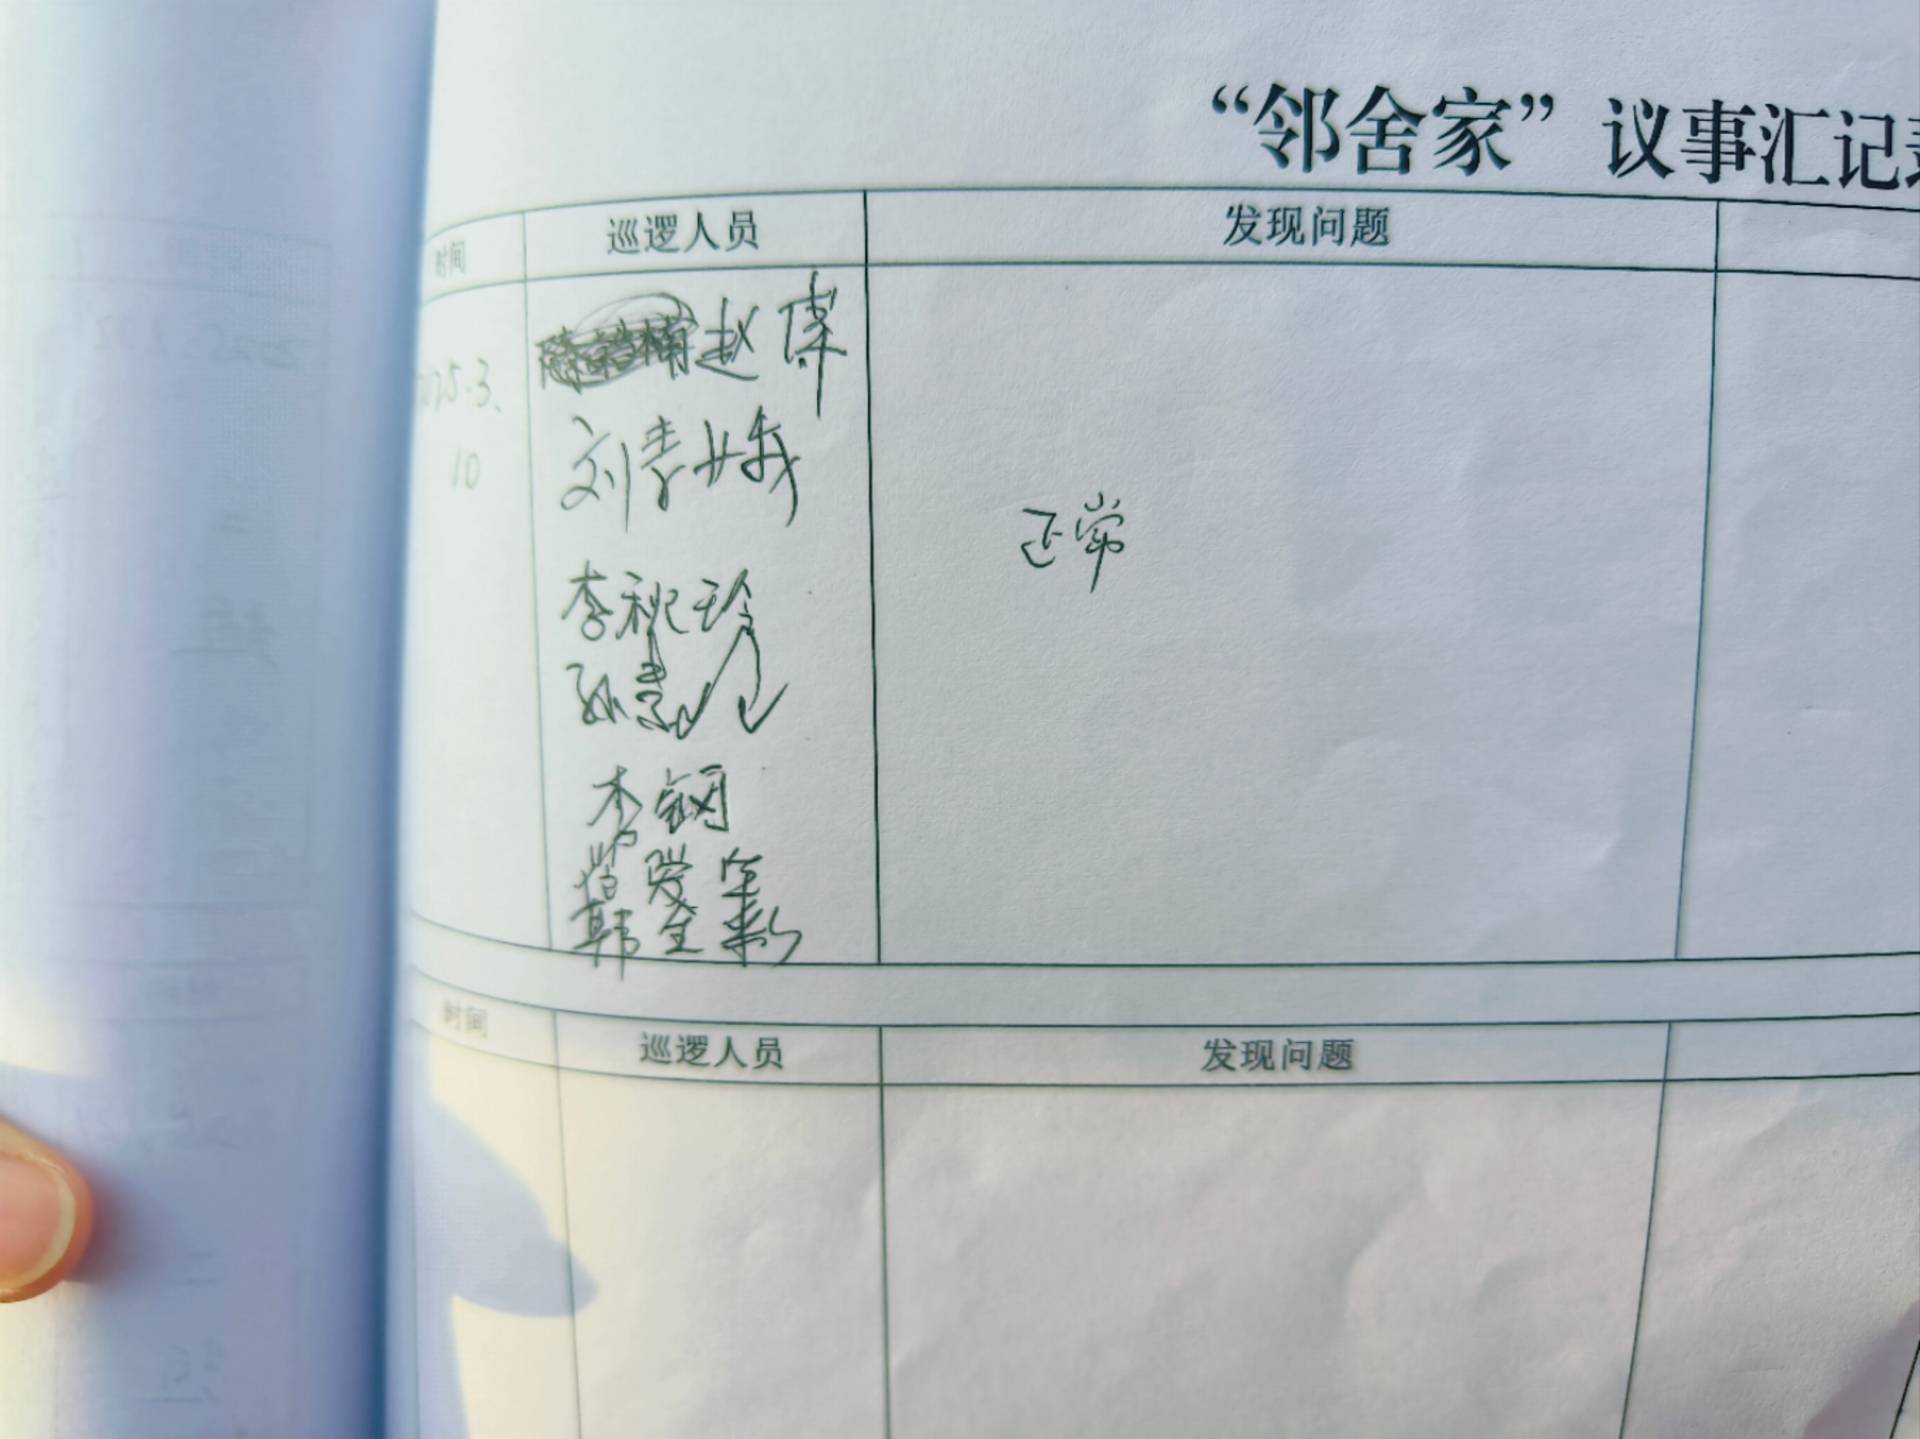 “邻舍家”议事汇记
时间 巡逻人员 发现问题
赵
2025.3.10
刘青娥
正常
李秋玲
孙惠
李钢
爱军
韩全彩
时间 巡逻人员 发现问题